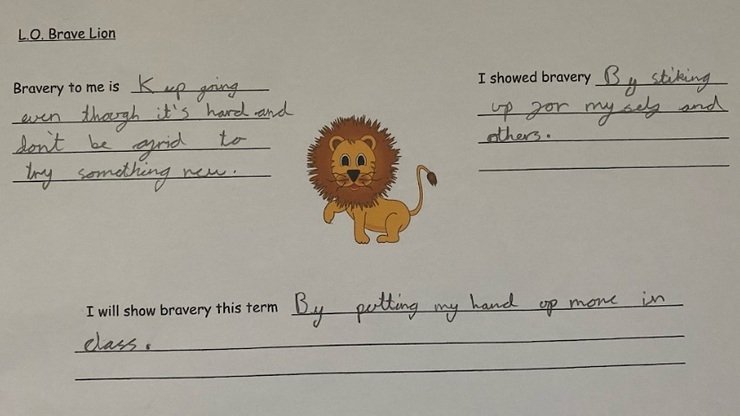 L.O. Brave Lion
Bravery to me is Keep going
even though it's hard and
don't be agrid to
try something new.
I showed bravery By stiking
up for my self and
others.
I will show bravery this term By putting my hand up more in
class.